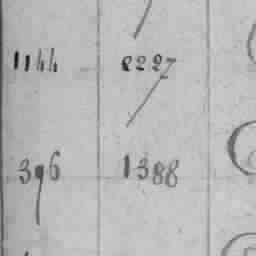 1144 2227
396 1388